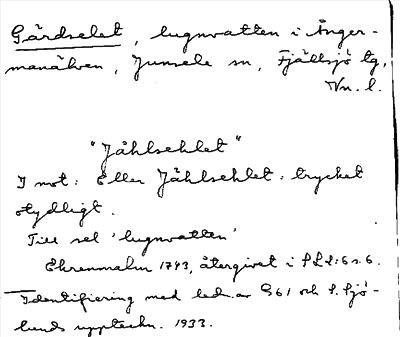 Gårdselet, lugnvatten i Ånger-
manälven, Junsele sn, Fjällsjö tg,
Vn. l.
"Jåhlsehlet"
I mot: Eller Jåhlsehlet: trycket
otydligt.
Till sel 'lugnvatten'
Ehrenmalm 1743, återgivet i SLl:6 s. 6.
Identifiering med ledn. av G61 och S. Sjö-
lunds uppteckn. 1933.